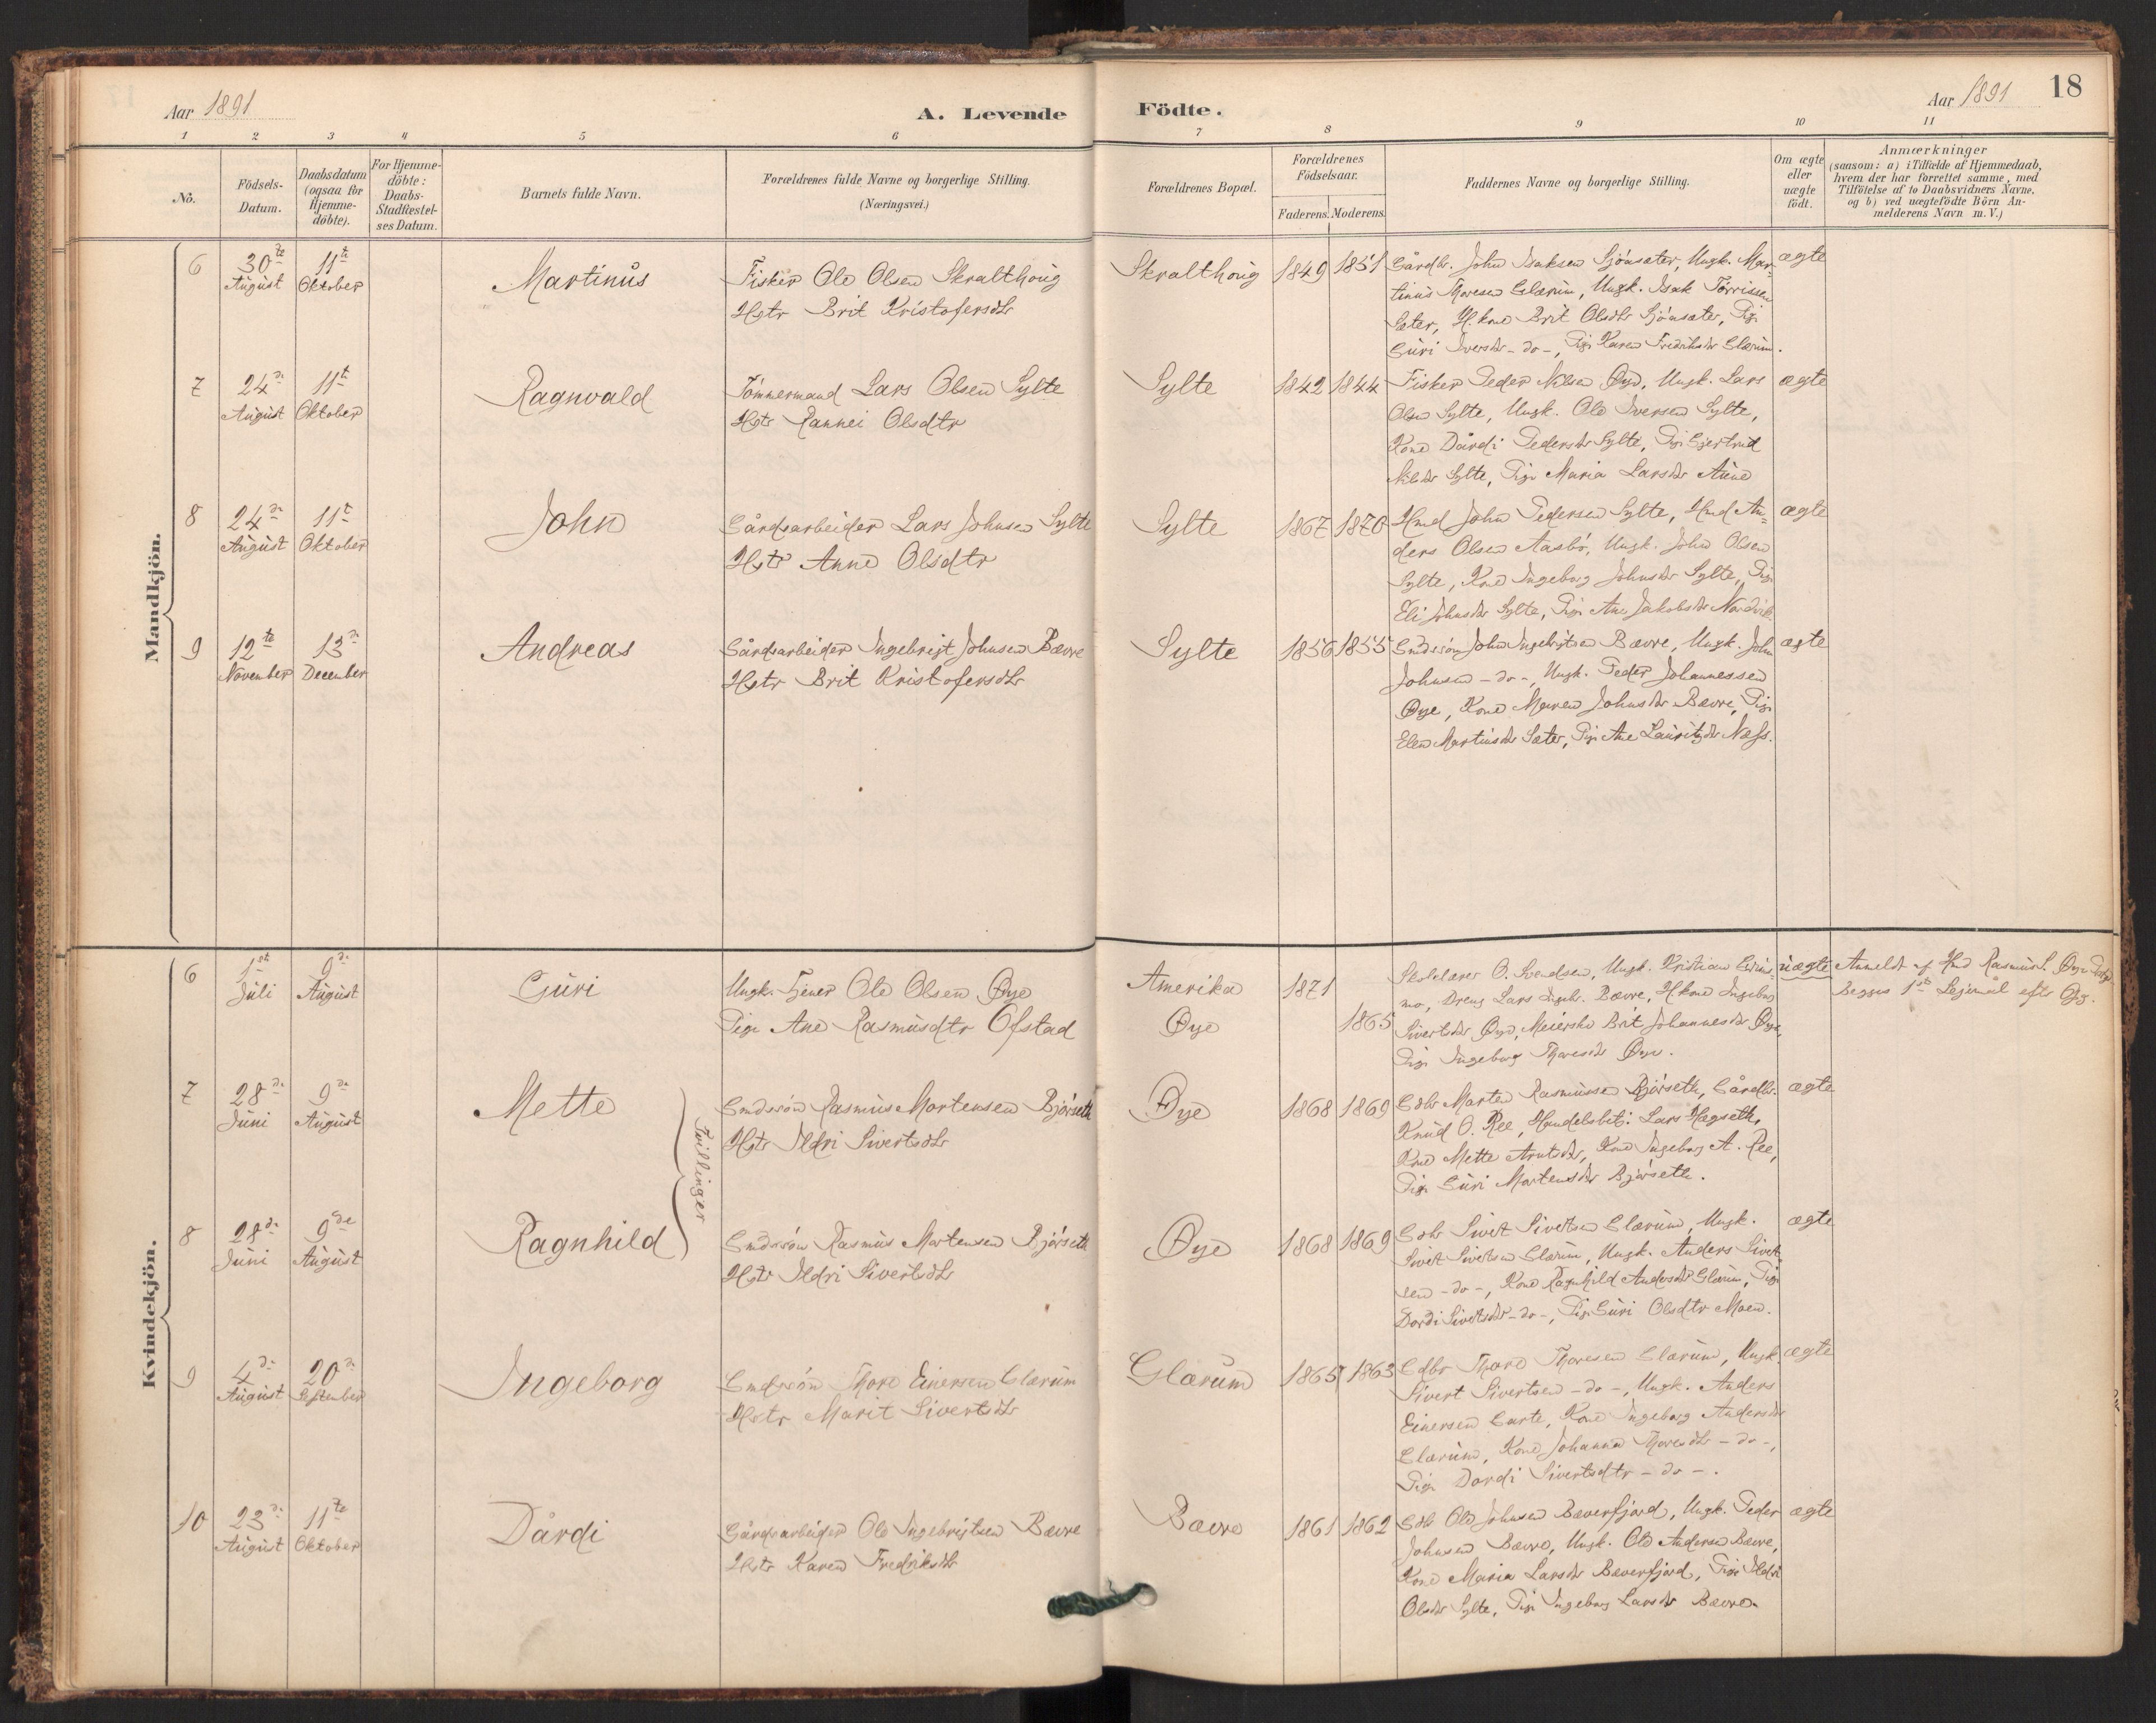 Aar 1891
A. Levende Födte.
Aar 1891 18
1 2 3 4 5 6 7 8 9 10 11
No.
Födsels-
Datum.
Daabsdatum
(ogsaa for
Hjemme-
döbte).
For Hjemme-
döbte:
Daabs-
Stadfæstel-
ses Datum.
Barnets fulde Navn.
Forældrenes fulde Navne og borgerlige Stilling.
(Næringsvei.)
Forældrenes Bopæl.
Forældrenes
Födselsaar.
Faderens. Moderens.
Faddernes Navne og borgerlige Stilling.
Om ægte
eller
uægte
födt.
Anmærkninger
(saasom: a) i Tilfælde af Hjemmedaab,
hvem der har forrettet samme, med
Tilföielse af to Daabsvidners Navne,
og b) ved uægtefödte Börn An-
melderens Navn m. V.)
Mandkjön.
6
30te
August
11te
Oktober
Martinus
Fisker Ole Olsen Skralthoug
Hstr Brit Kristofersdtr
Skralthoug
1849 1851
Gårdbr. John Isaksen Sjöasæter, Ungk. Mar-
tinus Thoresen Glærum, Ungk. Isak Torrissen
Sæter, H.kone Brit Olsdtr Sjöasæter, Pige
Guri Iversdtr - do -, Pige Karen Fredriksdtr Glærum.
ægte
7
24de
August
11te
Oktober
Ragnvald
Tömmermand Lars Olsen Sylte
Hstr Rannei Olsdtr
Sylte
1842 1844
Fisker Peder Nilsen Øye, Ungk. Lars
Olsen Sylte, Ungk. Ole Iversen Sylte,
Kone Dårdi Pedersdtr Sylte, Pige Gjertrud
Nilsdtr Sylte, Pige Maria Larsdtr Aune
ægte
8
24de
August
11te
Oktober
John
Gårdsarbeider Lars Johnsen Sylte
Hstr Anne Olsdtr
Sylte
1867 1870
Hmd John Pedersen Sylte, Hmd An-
ders Olsen Aasbö, Ungk. John Olsen
Sylte, Kone Ingeborg Johnsdtr Sylte, Pige
Eli Johnsdtr Sylte, Pige Ane Jakobsdtr Nordvik
ægte
9
12te
November
13de
December
Andreas
Gårdsarbeider Ingebrigt Johnsen Bævre
Hstr Brit Kristofersdtr
Sylte
1856 1855
Gmdssön John Ingebrigtsen Bævre, Ungk. John
Johnsen - do -, Ungk. Peder Johannessen
Øye, Kone Maren Johnsdtr Bævre, Pige
Elen Martinsdtr Sæter, Pige Ane Lauritzdtr Næss.
ægte
Kvindekjön.
6
1ste
Juli
9de
August
Guri
Ungk. Tjener Ole Olsen Øye
Pige Ane Rasmusdtr Ofstad
Amerika
Øye
1871
1865
Skolelærer O. Svendsen, Ungk. Kristian
mo, Dreng Lars Ingebr. Bævre, H.kone Ingeborg
Sivertsdtr Øye, Meierske Brit Johannesdtr Øye,
Pige Ingeborg Thoresdtr Øye.
uægte
Anmeldt af Hmd Rasmus L. Øye
Begges 1ste Leiermål efter Opg.
7
28de
Juni
9de
August
Mette
Tvillinger
Gmdssön Rasmus Mortensen Björåseth
Hstr Ildri Sivertsdtr
Øye
1868 1869
Gdbr Morten Rasmussen Björåseth, Gårdbr.
Knud O. Ree, Handelsbetj. Lars Hegseth,
Kone Mette Arntsdtr, Kone Ingeborg A. Ree,
Pige Guri Mortensdtr Björåseth.
ægte
8
28de
Juni
9de
August
Ragnhild
Gmdssön Rasmus Mortensen Björåseth
Hstr Ildri Sivertsdtr
Øye
1868 1869
Gdbr Sivert Sivertsen Glærum, Ungk.
Sivert Sivertsen Glærum, Ungk. Anders Sivert-
sen - do -, Kone Ragnhild Andersdtr Glærum, Pige
Dordi Sivertsdtr - do -, Pige Guri Olsdtr Moen.
ægte
9
4de
August
20de
September
Ingeborg
Gmdssön Thore Einersen Glærum
Hstr Marit Sivertsdtr
Glærum
1865 1863
Gdbr Thore Thoresen Glærum, Ungk.
Sivert Sivertsen - do -, Ungk. Anders
Einersen Garte, Kone Ingeborg Andersdtr
Glærum, Kone Johanna Thoresdtr - do -,
Pige Dordi Sivertsdtr - do -.
ægte
10
23de
August
11te
Oktober
Dårdi
Gårdsarbeider Ole Ingebrigtsen Bævre
Hstr Karen Fredriksdtr
Bævre
1861 1862
Gdbr Ole Johnsen Bæverfjord, Ungk. Peder
Johnsen Bævre, Ungk. Ole Andersen Bævre,
Kone Maria Larsdtr Bæverfjord, Pige Ildri
Olsdtr Sylte, Pige Ingeborg Larsdtr Bævre.
ægte